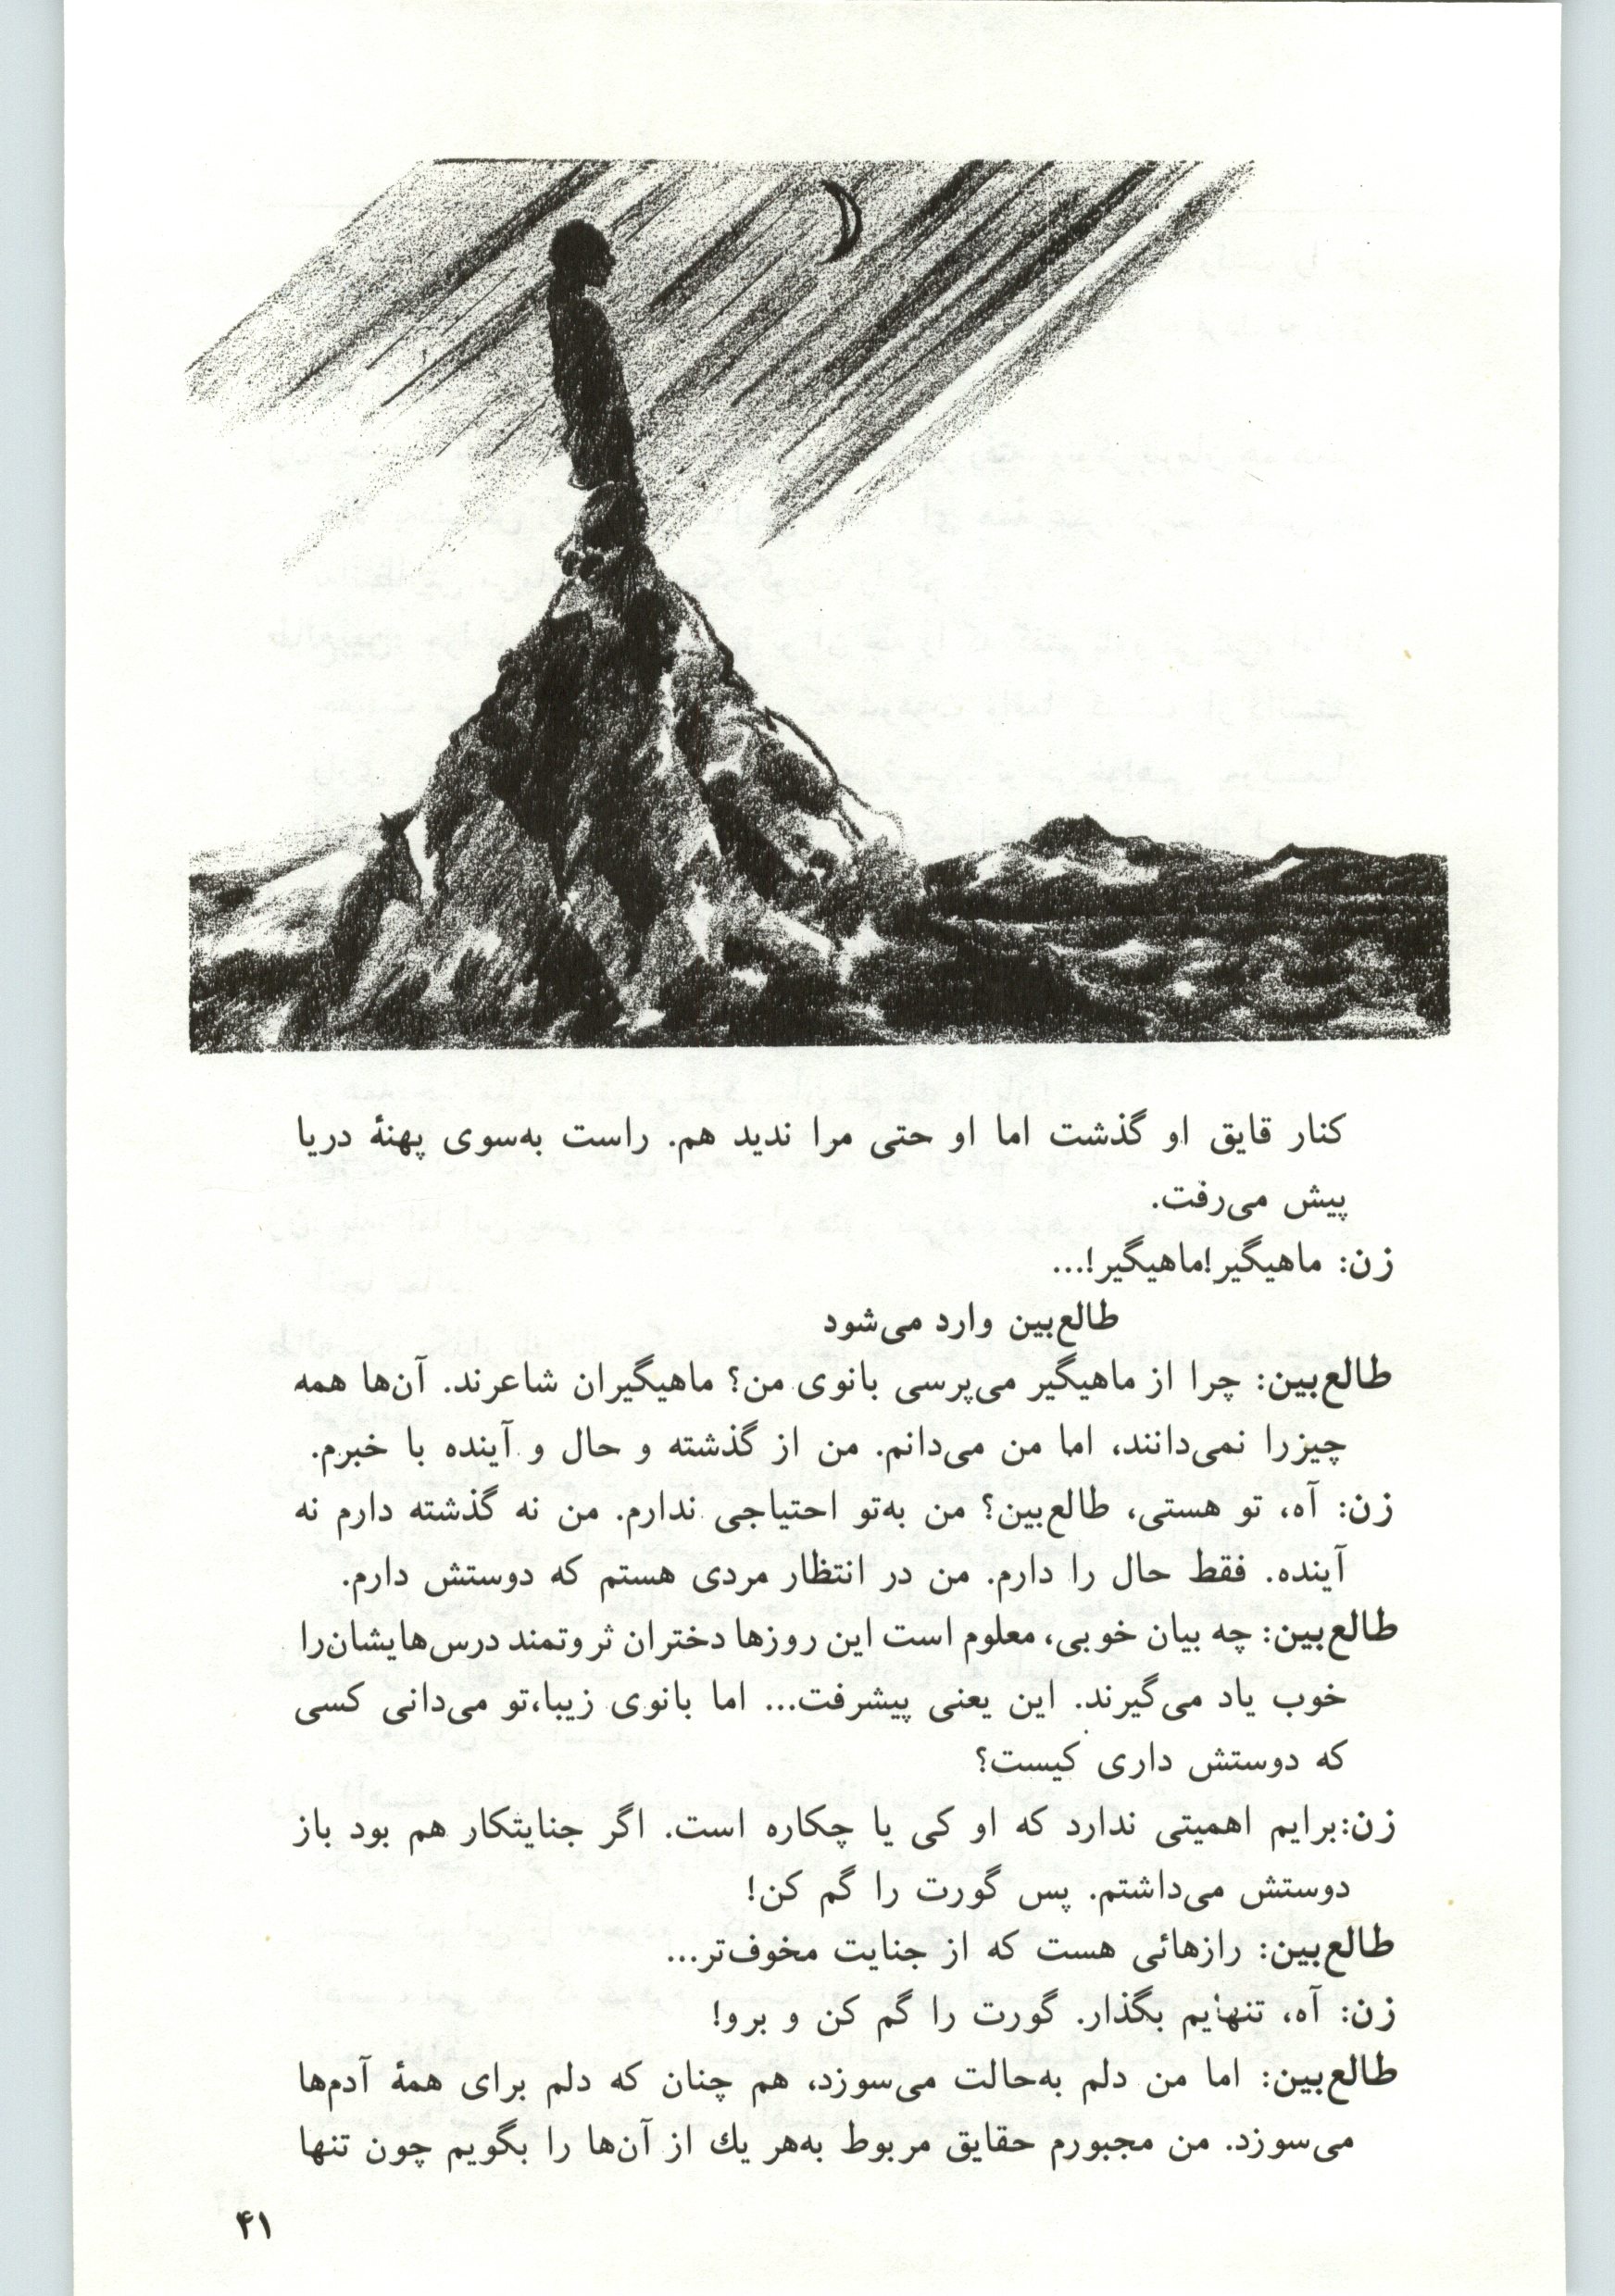 کنار قایق او گذشت اما او حتی مرا ندید هم. راست به‌سوی پهنهٔ دریا
پیش می‌رفت.
زن: ماهیگیر!ماهیگیر!...
طالع‌بین وارد می‌شود
طالع‌بین: چرا از ماهیگیر می‌پرسی بانوی من؟ ماهیگیران شاعرند. آن‌ها همه
چیزرا نمی‌دانند، اما من می‌دانم. من از گذشته و حال و آینده با خبرم.
زن: آه، تو هستی، طالع‌بین؟ من به‌تو احتیاجی ندارم. من نه گذشته دارم نه
آینده. فقط حال را دارم. من در انتظار مردی هستم که دوستش دارم.
طالع‌بین: چه بیان خوبی، معلوم است این روزها دختران ثروتمند درس‌هایشان‌را
خوب یاد می‌گیرند. این یعنی پیشرفت... اما بانوی زیبا،تو می‌دانی کسی
که دوستش داری کیست؟
زن:برایم اهمیتی ندارد که او کی یا چکاره است. اگر جنایتکار هم بود باز
دوستش می‌داشتم. پس گورت را گم کن!
طالع‌بین: رازهائی هست که از جنایت مخوف‌تر...
زن: آه، تنهایم بگذار. گورت را گم کن و برو!
طالع‌بین: اما من دلم به‌حالت می‌سوزد، هم چنان که دلم برای همهٔ آدم‌ها
می‌سوزد. من مجبورم حقایق مربوط به‌هر يك از آن‌ها را بگویم چون تنها
۴۱